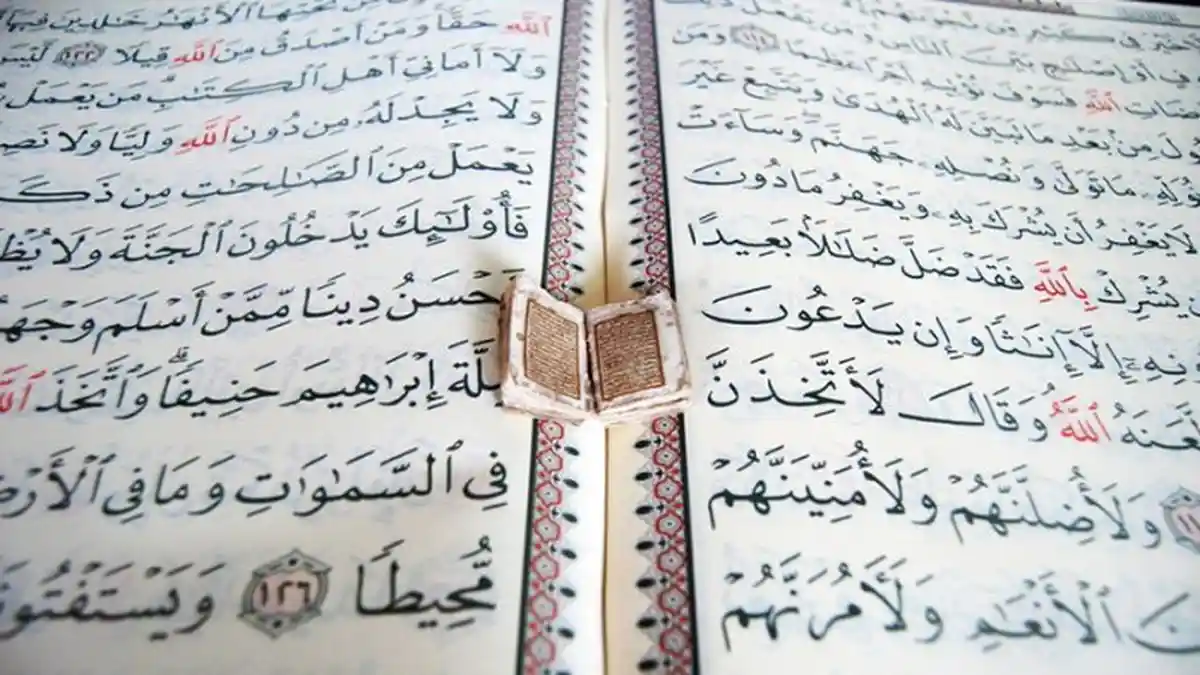 خَيْرَ فِي كَثِيرٍ مِّن نَّجْوَىٰهُمْ إِلَّا
أَوْ إِصْلَٰحٍ بَيْنَ ٱلنَّاسِ وَمَن يَفْعَلْ
ضَاتِ ٱللَّهِ فَسَوْفَ نُؤْتِيهِ أَجْرًا عَظِيمًا ١١٤ وَمَن
مِنۢ بَعْدِ مَا تَبَيَّنَ لَهُ ٱلْهُدَىٰ وَيَتَّبِعْ غَيْرَ
نُوَلِّهِۦ مَا تَوَلَّىٰ وَنُصْلِهِۦ جَهَنَّمَ وَسَآءَتْ
لَا يَغْفِرُ أَن يُشْرَكَ بِهِۦ وَيَغْفِرُ مَا دُونَ
يُشْرِكْ بِٱللَّهِ فَقَدْ ضَلَّ ضَلَٰلًۢا بَعِيدًا
نِهِۦٓ إِلَّآ إِنَٰثًا وَإِن يَدْعُونَ
لَّعَنَهُ ٱللَّهُ وَقَالَ لَأَتَّخِذَنَّ
وَلَأُضِلَّنَّهُمْ وَلَأُمَنِّيَنَّهُمْ
نَ ٱلْأَنْعَٰمِ وَلَءَامُرَنَّهُمْ
مِن تَحْتِهَا ٱلْأَنْهَٰرُ خَٰلِدِينَ فِيهَآ
ٱللَّهِ حَقًّا وَمَنْ أَصْدَقُ مِنَ ٱللَّهِ قِيلًا ١٢٢ لَّيْسَ
وَلَآ أَمَانِيِّ أَهْلِ ٱلْكِتَٰبِ مَن يَعْمَلْ
وَلَا يَجِدْ لَهُۥ مِن دُونِ ٱللَّهِ وَلِيًّا وَلَا نَصِ
يَعْمَلْ مِنَ ٱلصَّٰلِحَٰتِ مِن ذَكَ
فَأُو۟لَٰٓئِكَ يَدْخُلُونَ ٱلْجَنَّةَ وَلَا يُظْ
أَحْسَنُ دِينًا مِّمَّنْ أَسْلَمَ وَجْهَهُ
مِلَّةَ إِبْرَٰهِيمَ حَنِيفًا ۗ وَٱتَّخَذَ ٱللَّهُ
فِي ٱلسَّمَٰوَٰتِ وَمَا فِي ٱلْأَرْضِ
مُّحِيطًا ١٢٦ وَيَسْتَفْتُونَ